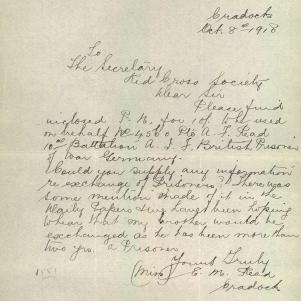 Cradock
Oct. 8th 1918
To
The Secretary
Red Cross Society
Dear Sir
Please find
inclosed P. N. for 10/- to be used
on behalf No 4560 Pte A. F. Head
10th Battalion A. I. F. British Prisoner
of War Germany.
Could you supply any information
re exchange of Prisoners, There was
some mention made of it in the
Daily Papers &
when that my brother would be
exchanged as he has been more than
two yrs. a Prisoner
Yours Truly
(Miss) E. M. Head
Cradock